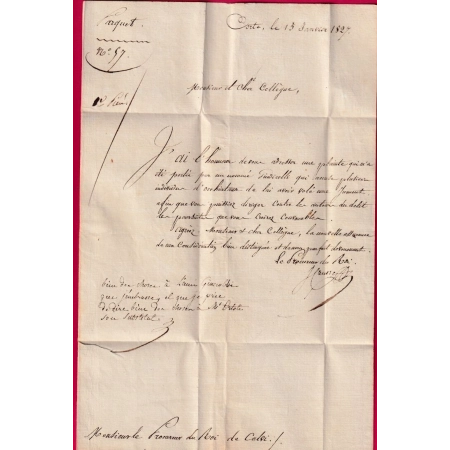 Parquet.
N° 57
Corte, le 13 Janvier 1827
1e Pièce
Monsieur et cher Collègue,
J'ai l'honneur de vous adresser une plainte qui m'a
été portée par un nommé Guidicelli qui accuse plusieurs
individus d' de lui avoir volé une jument
afin que vous puissiez diriger contre les auteurs du délit
les poursuites que vous croirez convenables.
Agréez Monsieur et cher Collègue, la nouvelle assurance
de ma considération bien distinguée et de mon parfait dévouement.
Le Procureur du Roi.
bien des choses à
que j'embrasse, et que je prie
de dire bien des choses à Mr
son substitut.
Monsieur le Procureur du Roi de Calvi /.